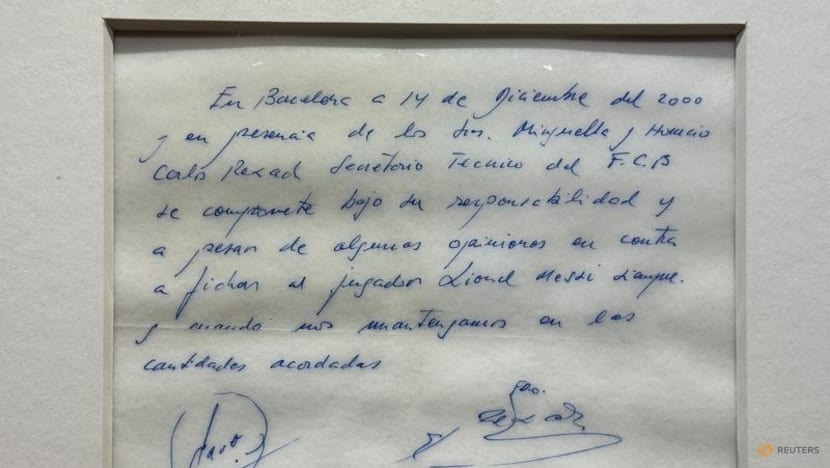 En Barcelona a 14 de Diciembre del 2000
y en presencia de los Srs. Minguella y Horacio
Carlos Rexach Secretario Técnico del F.C.B
se compromete bajo su responsabilidad y
a pesar de algunas opiniones en contra
a fichar al jugador Lionel Messi siempre
y cuando nos mantengamos en las
cantidades acordadas
FDO.
REUTERS